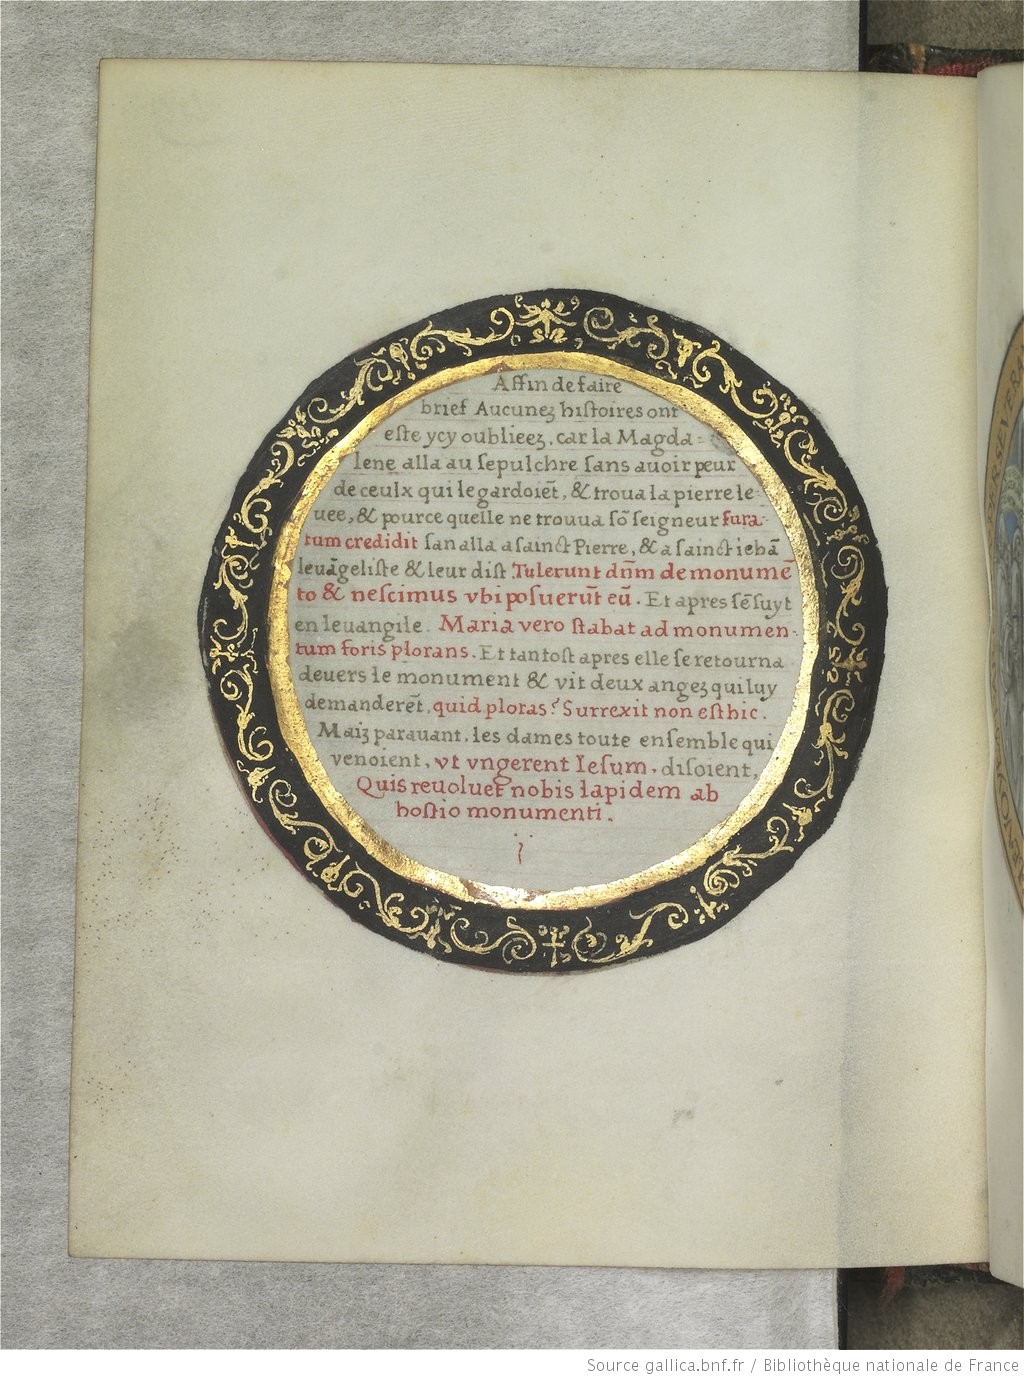 Affin de faire
brief Aucunez histoires ont
este ycy oublieez, car la Magda=
lene alla au sepulchre sans auoir peur
de ceulx qui le gardoiẽt, & troua la pierre le
uee, & pource quelle ne trouua sõ seigneur fura
tum credidit san alla a sainct Pierre, & a sainct iehã
leuãgeliste & leur dist Tulerunt dñm de monumẽ
to & nescimus vbi posuerũt eũ. Et apres sẽsuyt
en leuangile. Maria vero stabat ad monumen
tum foris plorans. Et tantost apres elle se retourna
deuers le monument & vit deux angez qui luy
demanderẽt, quid ploras? Surrexit non est hic.
Maiz parauant, les dames toute ensemble qui
venoient, vt vngerent Iesum, disoient,
Quis reuoluet nobis lapidem ab
hostio monumenti.
PERSEVERA
Source gallica.bnf.fr / Bibliothèque nationale de France